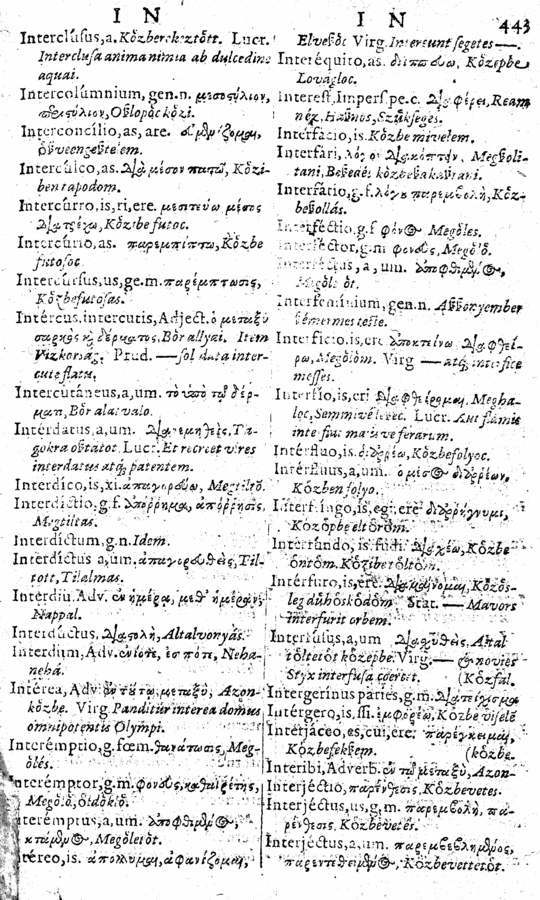 I N
I N
443
Interclusus, a. Kőzberekeztőtt. Lucr.
Interclusa anima nimia ab dulcedine
aquai.
Intercolumnium, gen. n. μεσοςύλιον,
Oßlopác kőzi.
Interconcilio, as, are.
őszveengeßteßem.
Interculco, as. μέσον πατῶ, Kőzi-
ben tapodom.
Intercurro, is, ri, ere. μεσιτεύω μέσος
διατρέχω, Kőzibe futoc.
Intercurio, as. παρεμπίπτω, Kőzbe
futosoc
Intercursus, us, ge. m. παρέμπτωσις,
Kőzbefutosas.
Intércus, intercutis, Adject. ὁ μεταξὺ
σαρκὸς κỳ δέρματος, Bőr allyai. Item
Vizkorság. Prud. — sol data inter-
cute flatu.
Intercutáneus, a, um. τὸ ὑπὸ τῷ δέρ-
ματι, Bőr alat valo.
Interdatus, a, um. Ta-
gokra oßtatot Lucr. Et recreet vires
interdatus atq; patentem.
Interdico, is, xi. ἀπαγορεύω, Megtiltő.
Interdictio, g. f. ἀπόρρημα, ἀπόρρησις,
Megtiltas.
Interdictum, g. n. Idem.
Interdictus a, um. ἀπαγορευθεὶς, Til-
tott, Tilalmas.
Interdiu. Adv. ἐν ἡμέρᾳ, μεθ' ἡμέραν,
Nappal.
Interductus, διαςολὴ, Altalvonyás.
Interdum, Adv. ἐνίοτε, ἔς πότε, Neha-
nehá.
Intérea, Adv. ἐν τȣ́τῳ, μεταξὺ, Azon-
kőzbe. Virg. Panditur interea domus
omnipotentis Olympi.
Interémptio, g. fœm. θανάτωσις, Meg-
ölés.
Interémptor, g. m. φονεὺς, καθαιρέτης,
Megőlő, őldőklő.
Interemptus, a, um.
Megőletőt.
Intereo, is. ἀπόλλυμαι, ἀφανίζομαι,
Elveßőc Virg. Intereunt segetes —.
Interéquito, as. διιππεύω, Kőzepbe
Lovagloc.
Interest, Impers. pe. c. διαφέρει, Ream
nez, Haßnos, Szükseges.
Interfacio, is. Kőzbe mivelem.
Interfari, λόγοι διακόπτειν, Megßoli-
tani, Beßedec kőzbe kaβtani.
Interfatio, g. f. λόγȣ παρεμβολὴ, Kőz-
beßollás.
Interfectio, g. f φόν Megőles.
Interfector, g. m φονεὺς, Megőlő.
Interfectus, a, um.
Megőlőt.
Interfeminium, gen. n. Aßßonyember
ßemermes teste.
Interficio, is, ere ἀποκτείνω, διαφθεί-
ρω, Megőlőm. Virg — atq; interfice
messes.
Interfio, is, eri διαφθείρομαι, Megha-
loc, Semmivé leßec. Lucr. Aut flamis
interfiat malisve ferarum.
Intérfluo, is. διαρρέω, Kőzbefolyoc.
Intérfluus, a, um. διαρρέων,
Kőzben folyo.
Interfringo, is, egi, ere διαρρήγνυμι,
Kőzőpbe eltőrőm.
Interfundo, is. fudi. διαχέω, Kőzbe
őntőm. Kőzibe tőltőm.
Interfuro, is, ere. διαμαίνομαι, Kőzős-
leg dühőskődőm Stat. — Mavors
interfurit orbem.
Interfusus, a, um διαχυθεὶς, Altal
tőltetőt kőzepbe. Virg. — & novies
Styx interfusa coercet. (Kőzfal.
Intergerinus paries, g. m. διατείχισμα
Intérgero, is, ssi. ἐμφορέω, Kőzbe viselé
Interjaceo, es, cui, ere. παρέγκειμαι,
Kőzbefekßem. (kőzbe.
Interibi, Adverb. ἐν τῷ μεταξὺ, Azon-
Interjéctio, παρένθεσις. Kőzbevetes.
Interjéctus, us, g, m. παρεμβολὴ, πα-
ρένθεσις. Kőzbevetés.
Interjéctus, a, um. παρεμβεβλημένος,
Kőzbevettetőt.